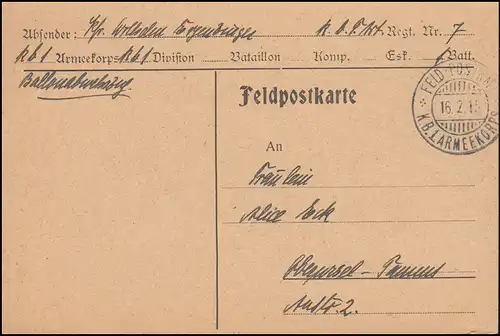 Absender: Wilhelm K. B. F. Art. Regt. Nr. 7
K b 1 Armeekorps K b 1 Division Bataillon Komp. Esk. Batt.
Ballonabwehrzug
Feldpostkarte
FELD
16.2.1
K.B.I.ARMEEKORPS
An
Fräulein
Alice Eck
Oberursel - Taunus